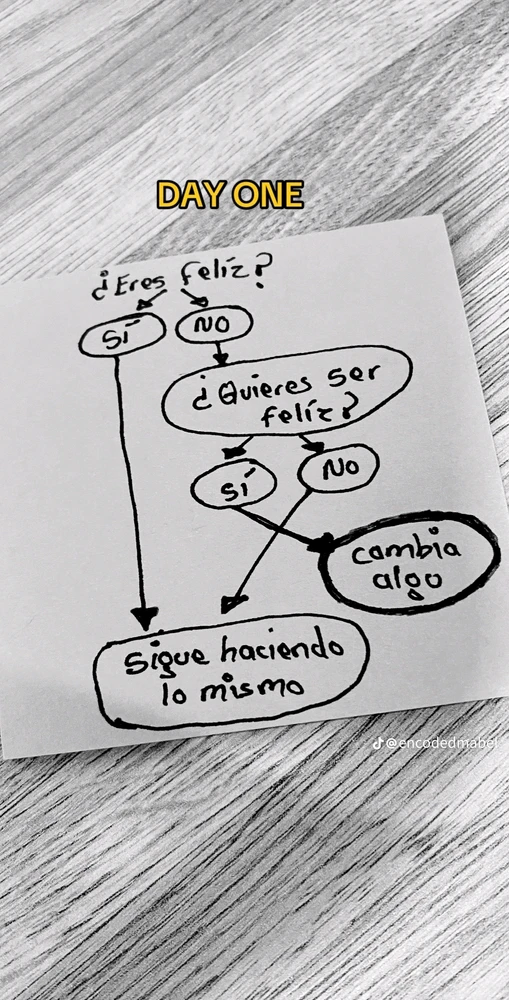 DAY ONE
¿Eres feliz?
Sí
NO
¿Quieres ser
feliz?
Sí
No
cambia
algo
Sigue haciendo
lo mismo
@encodedmabel